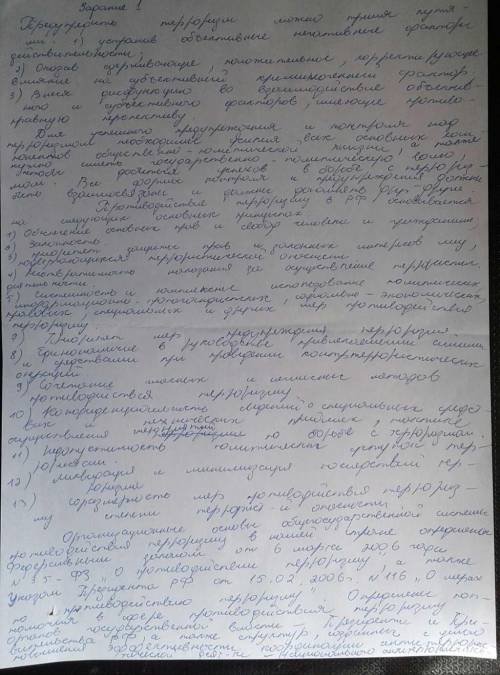 Задание 1
Предупредить терроризм можно тремя путя-
ми: 1) устранив объективные негативные факторы
действительности;
2) Оказав сдерживающее, положительное, корректирующее
влияние на субъективный криминогенный фактор
3) Внеся дисфункцию во взаимодействие объектив-
ного и субъективного факторов, имеющие противо-
правную перспективу
Для успешного предупреждения и контроля над
терроризмом необходимы усилия всех основных ком
понентов общественно-политической жизни, а также
нужно иметь государственно-политическую волю
чтобы добиться успехов в борьбе с террориз-
мом. Все формы контроля и предупреждения должны
быть взаимосвязаны и должны дополнять друг-друга
Противодействие терроризму в РФ основывается
на следующих основных принципах
1) Обеспечение основных прав и свобод человека и гражданина;
2) Законность
3) приоритет защиты прав и законных интересов лиц,
подвергающихся террористической опасности
4) Неотвратимость наказания за осуществление террористич.
деятельности.
5) Системность и комплексное использование политических,
информационно-пропагандистских, социально-экономических,
правовых, специальных и других мер противодействия
терроризму
7) Приоритет мер предупреждения терроризма.
8) Единоначалие в руководстве привлекаемыми силами
и средствами при проведении контртеррористических
операций
9) Сочетание гласных и негласных методов
противодействия терроризму
10) Конфиденциальность сведений о специальных средст-
вах и технических приёмах, тактике
осуществления мероприятий по борьбе с терроризмом.
11) Недопустимость политических уступок тер-
рористам.
12) Ликвидация и минимизация последствий тер-
роризма
13) соразмерность мер противодействия террориз-
му степени террорист-й опасности
Организационные основы общегосударственной системы
противодействия терроризму в нашей стране определены
Федеральным законом от 6 марта 2006 года
N 35-ФЗ "О противодействии терроризму", а также
Указом Президента РФ от 15.02.2006г. N116 "О мерах
по противодействию терроризму". Определены пол-
номочия в сфере противодействия терроризму
органов государственной власти - Президента и Пра-
вительства РФ, а также структур, созданных с целью
повышения эффективности координации антитеррорис-
тической деят-ти - Национального антитеррористич